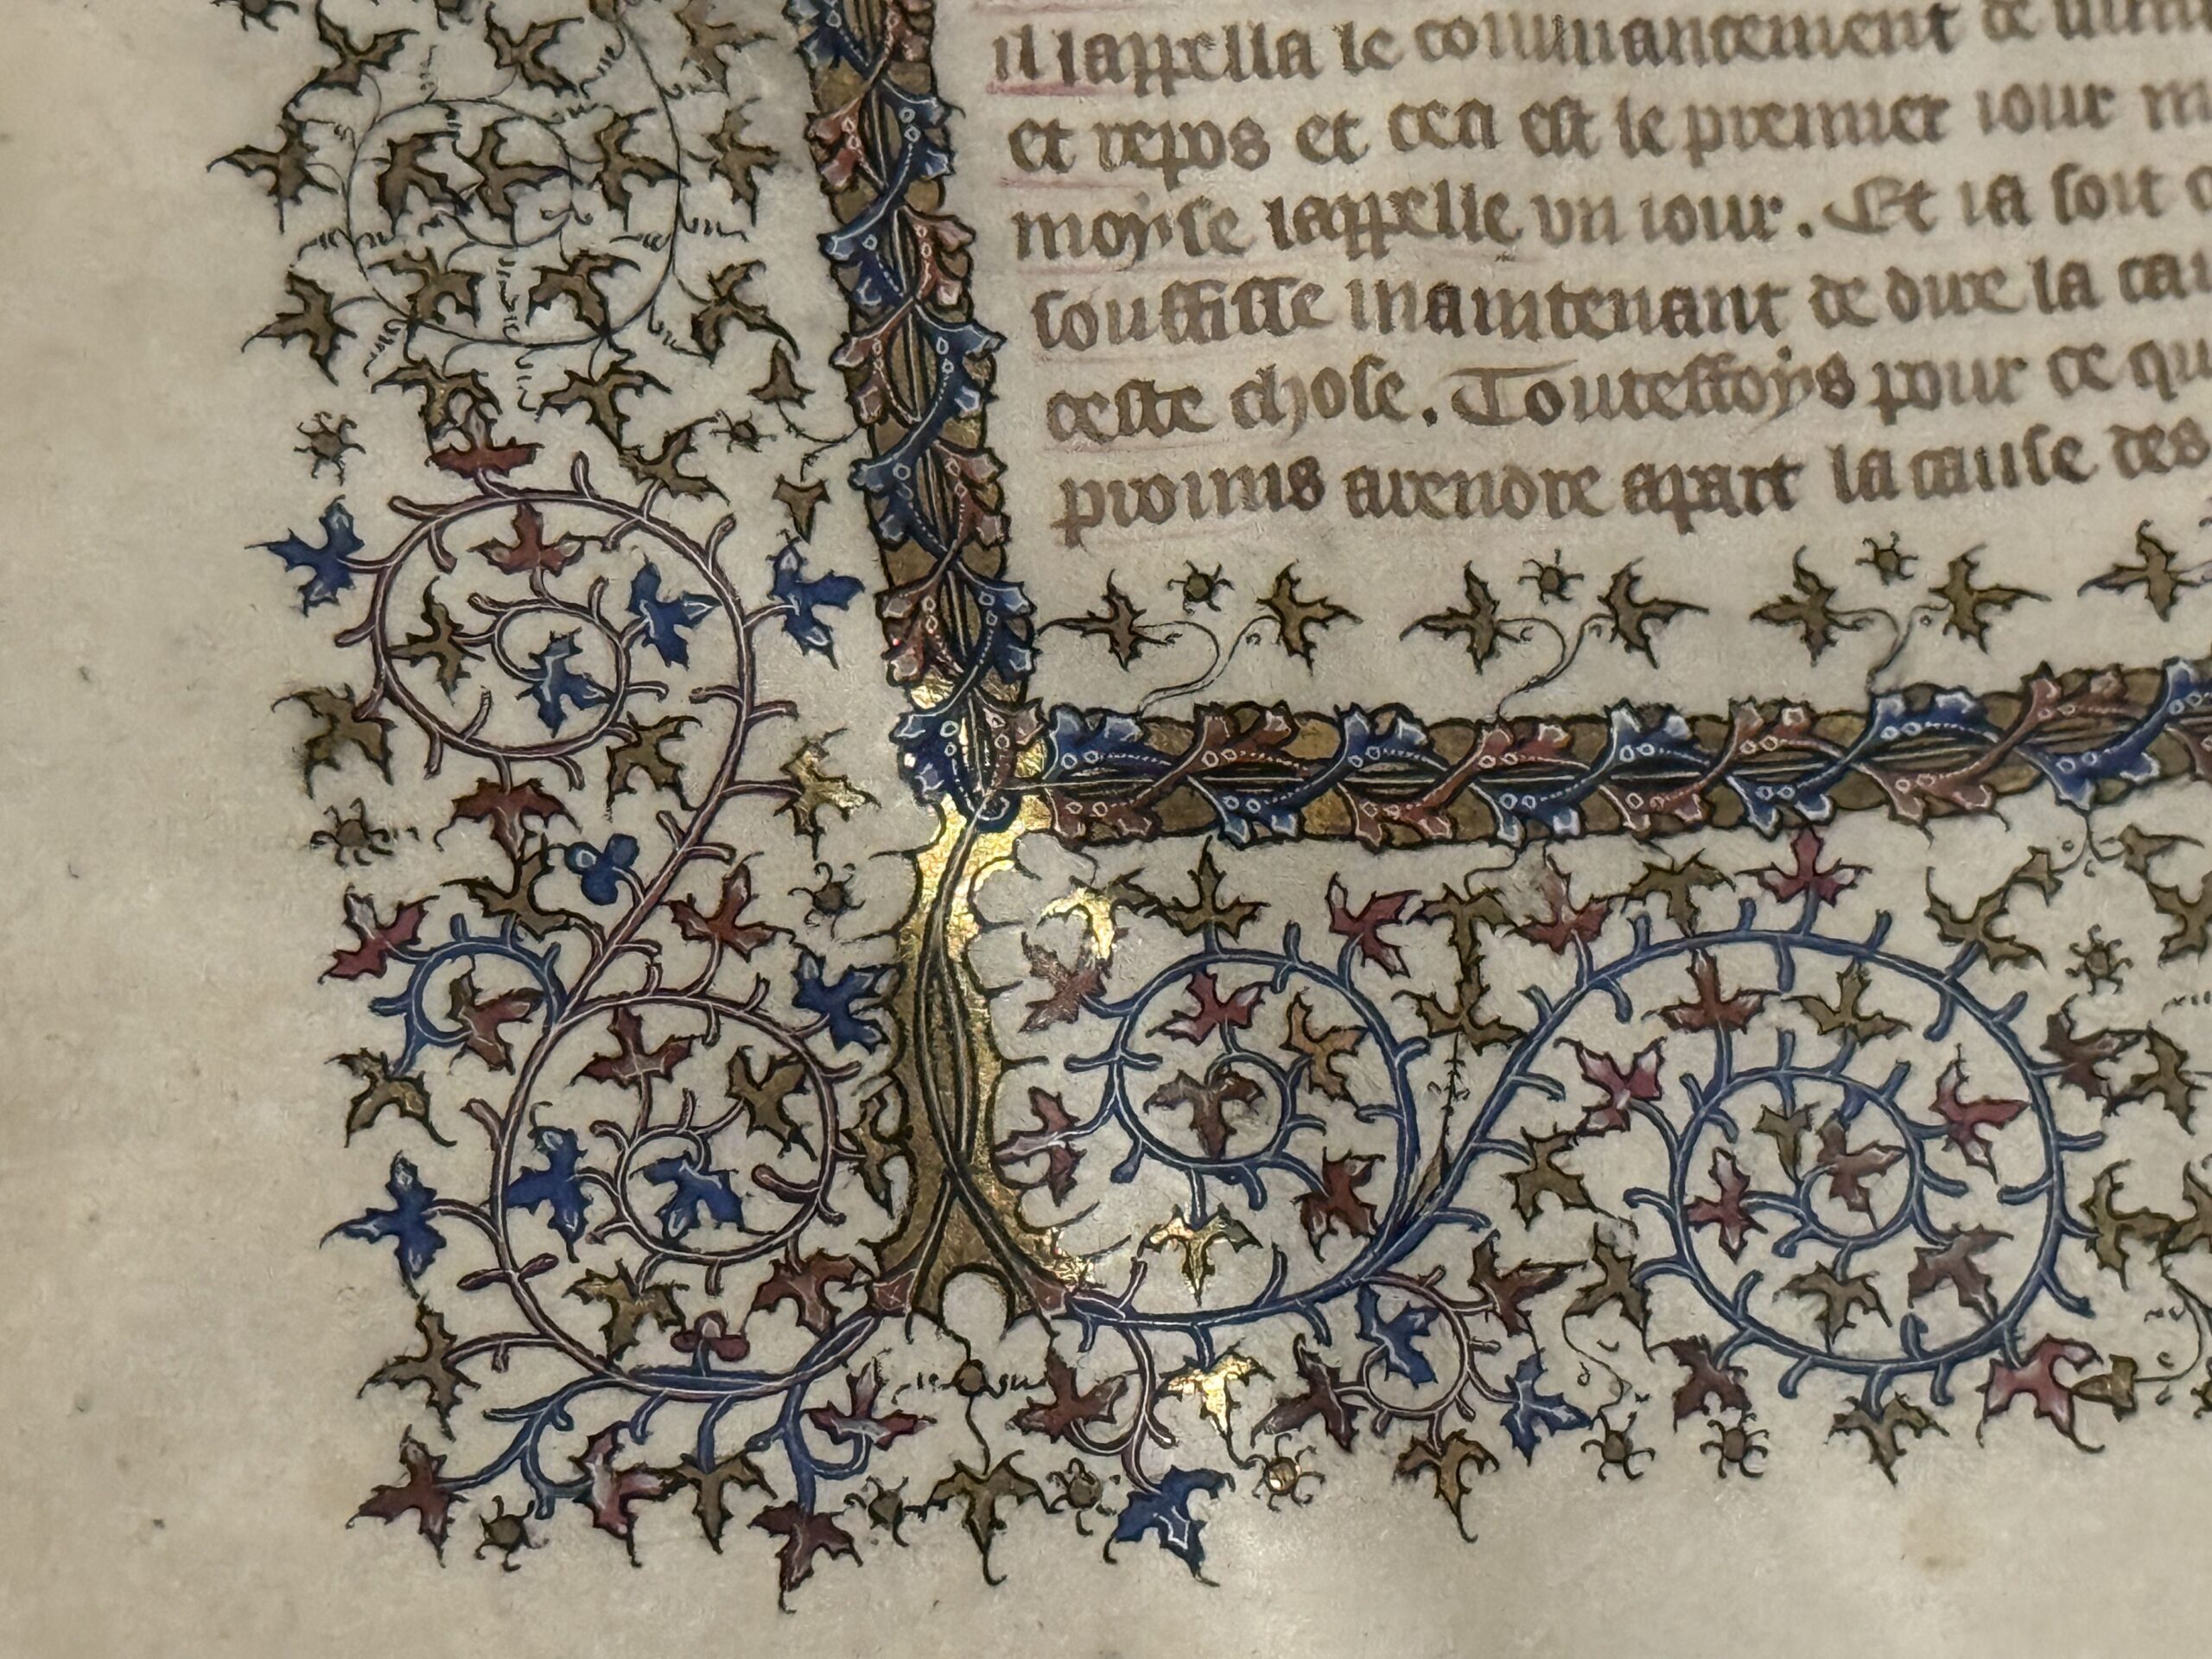 il lappella le commancement de
et repos et ceci est le premier iour
moyse lappelle vn iour. Et ia soit
souffisse maintenant de dire la
ceste chose. Touteffoys pour ce
promis arendre apart la cause des